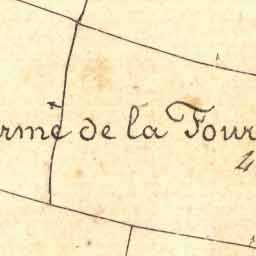 ermé de la Four
4